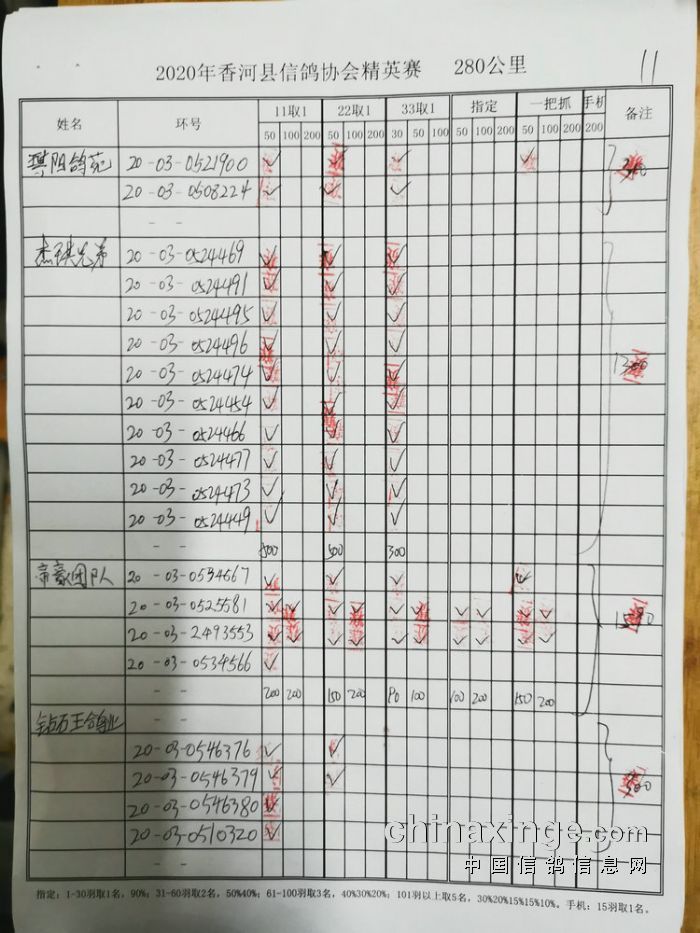 11
2020年香河县信鸽协会精英赛 280公里
姓名 环号 11取1 22取1 33取1 指定 一把抓 手机 备注
50 100 200 50 100 200 30 50 100 50 100 200 50 100 200 200
20-03-0521900 ✓ ✓ ✓ ✓
20-03-0508224 ✓ ✓ ✓
- -
杰琪兄弟 20-03-0524469 ✓ ✓ ✓
20-03-0524491 ✓ ✓ ✓
20-03-0524495 ✓ ✓ ✓
20-03-0524496 ✓ ✓ ✓
20-03-0524474 ✓ ✓ ✓ 1300
20-03-0524454 ✓ ✓ ✓
20-03-0524466 ✓ ✓ ✓
20-03-0524477 ✓ ✓ ✓
20-03-0524473 ✓ ✓ ✓
20-03-0524449 ✓ ✓ ✓
- - 500 500 300
帝豪团队 20-03-0534667 ✓ ✓ ✓ ✓
20-03-0525581 ✓ ✓ ✓ ✓ ✓ ✓ ✓ ✓ ✓ ✓
20-03-2493553 ✓ ✓ ✓ ✓ ✓ ✓ ✓ ✓ ✓ ✓
20-03-0534566 ✓
- - 200 200 150 200 90 100 100 200 150 200
钻石王鸽业
20-03-0546376 ✓ ✓
20-03-0546379 ✓ ✓
20-03-0546380 ✓
20-03-0510320 ✓
- -
chinaxinge.com
中国信鸽信息网
指定：1-30羽取1名，90%；31-60羽取2名，50%40%；61-100羽取3名，40%30%20%；101羽以上取5名，30%20%15%15%10%。手机：15羽取1名。